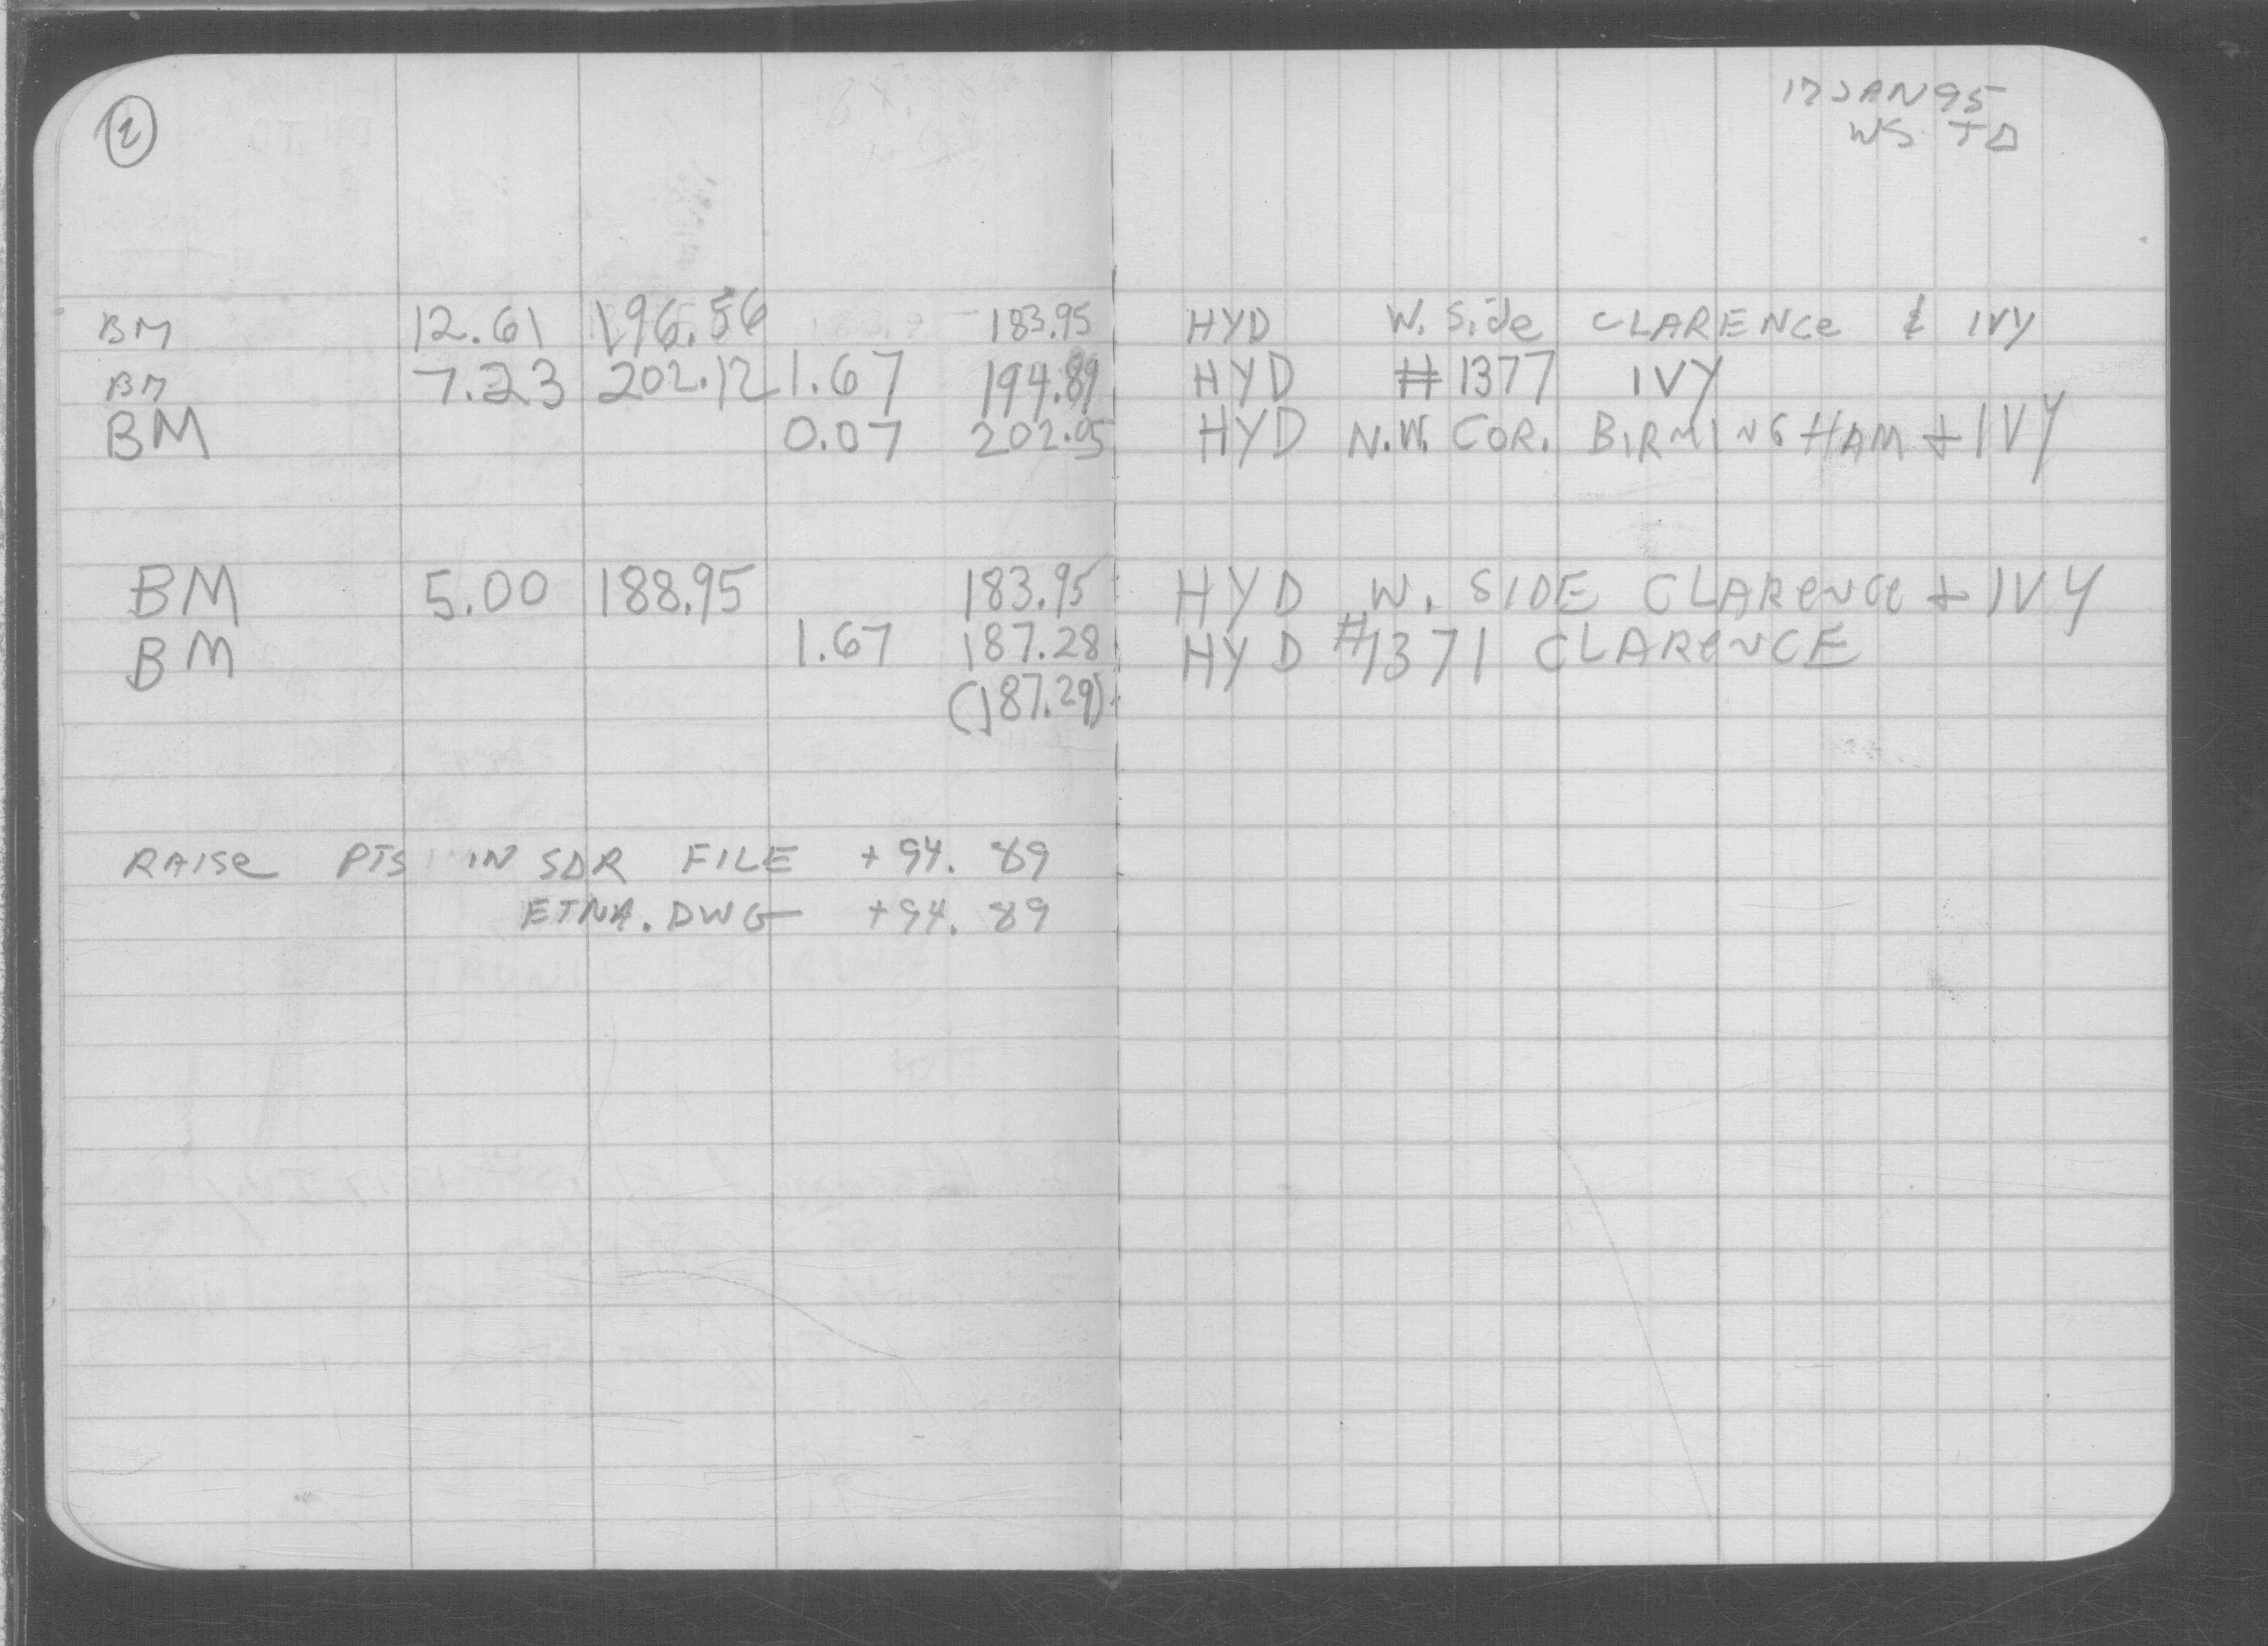 2
17 JAN 95
WS TD
BM 12.61 196.56 183.95 HYD W. Side CLARENCe & IVY
BM 7.23 202.12 1.67 194.89 HYD # 1377 IVY
BM 0.07 202.05 HYD N.W. COR. BIRMINGHAM + IVY
BM 5.00 188.95 183.95 HYD W. SIDE CLAReNCe + IVY
BM 1.67 187.28 HYD #1371 CLAReNCE
(187.29)
RAISe PTS IN SDR FILE +94. 89
ETNA.DWG +94. 89